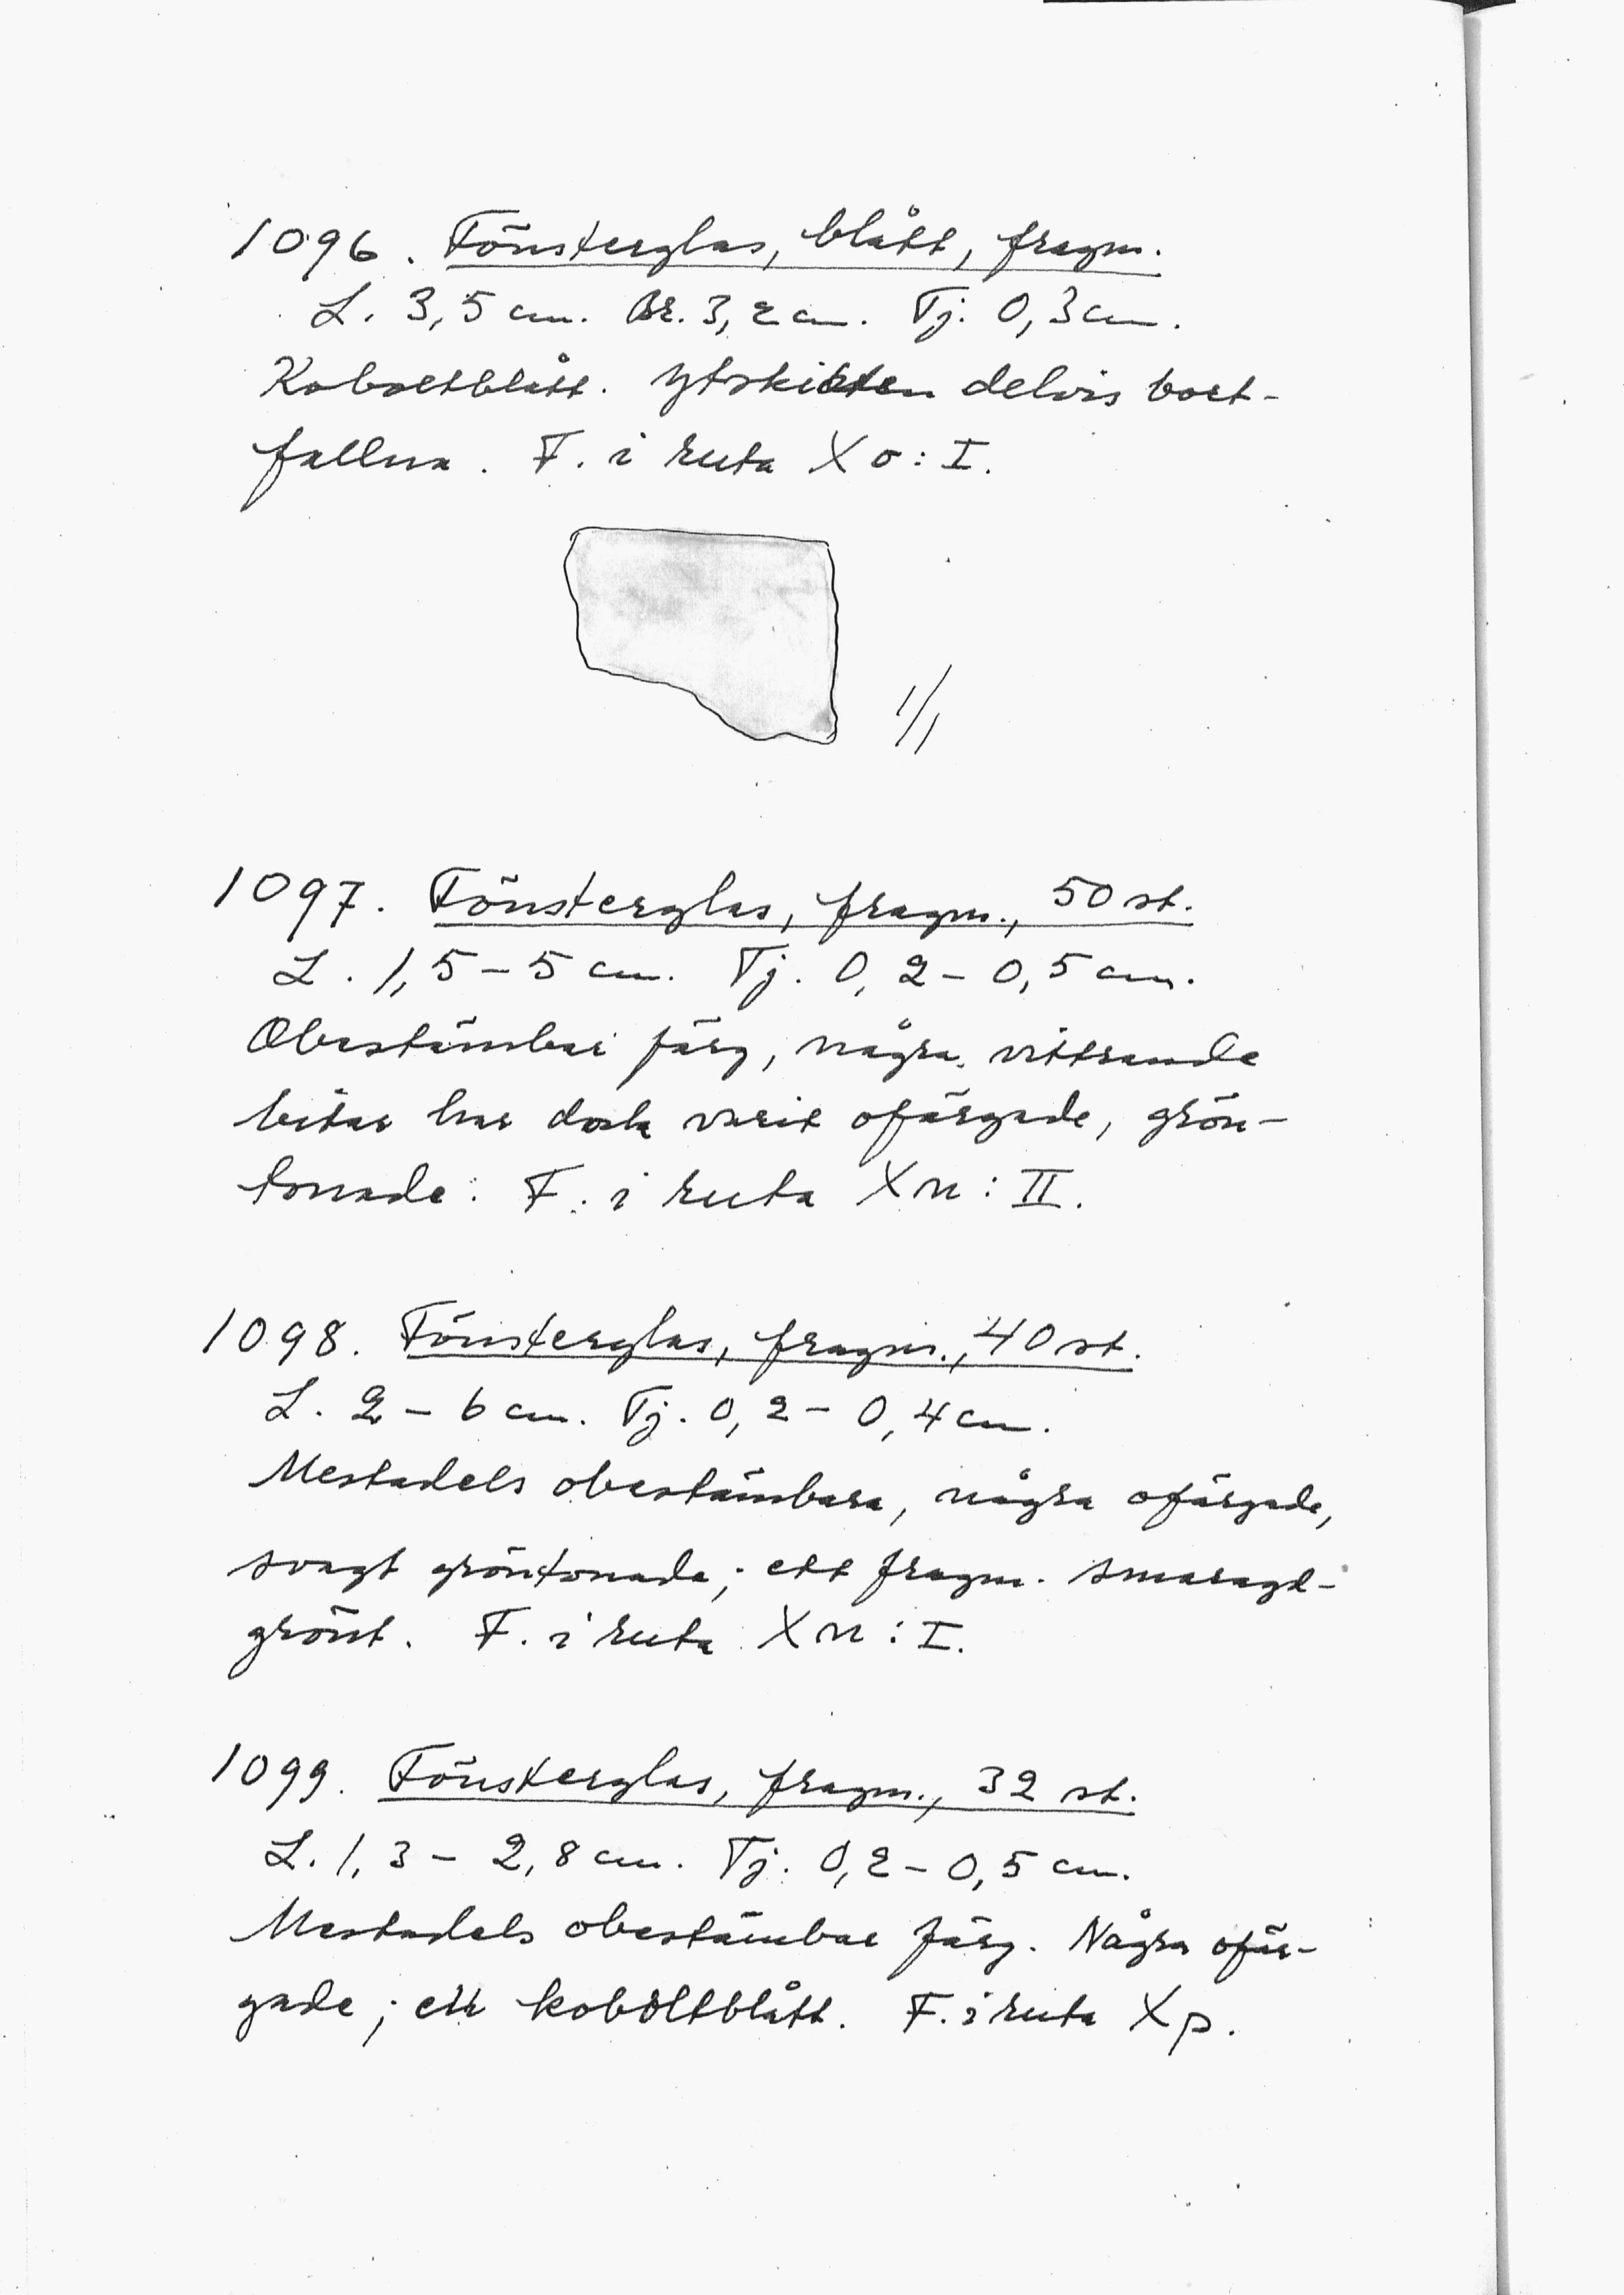 1096. Fönsterglas, blått, fragm.
L. 3,5 cm. Br. 3,2 cm. Tj. 0,3 cm.
Koboltblått. Ytskikten delvis bort-
fallna. F. i ruta Xo: I.
1/1
1097. Fönsterglas, fragm., 50 st.
L. 1,5 - 5 cm. Tj. 0,2 - 0,5 cm.
Obestämbar färg, några vittrande
bitar har dock varit ofärgade, grön-
tonade. F. i ruta Xn: II.
1098. Fönsterglas, fragm., 40 st.
L. 2 - 6 cm. Tj. 0,2 - 0,4 cm.
Mestadels obestämbara, några ofärgade,
svagt gröntonade; ett fragm. smaragd-
grönt. F. i ruta Xn: I.
1099. Fönsterglas, fragm., 32 st.
L. 1,3 - 2,8 cm. Tj. 0,2 - 0,5 cm.
Mestadels obestämbar färg. Några ofär-
gade; ett koboltblått. F. i ruta Xp.